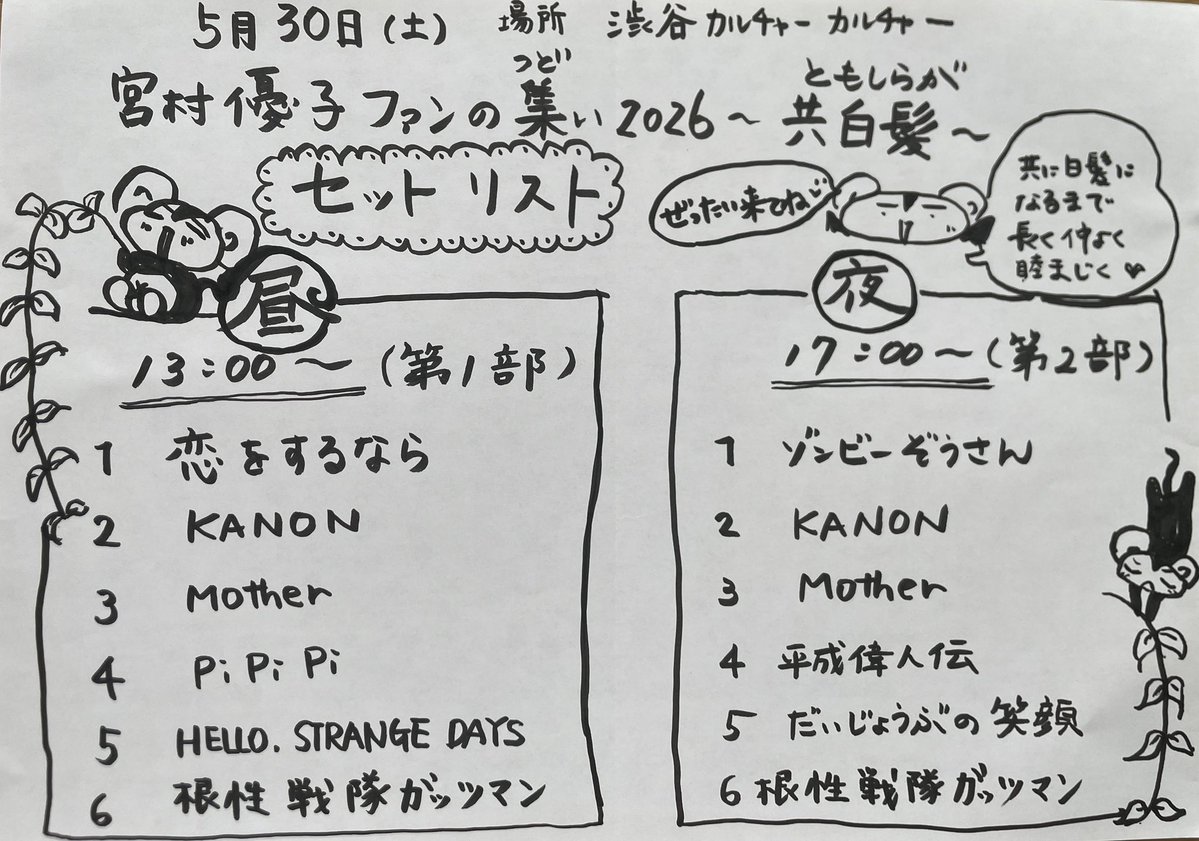 5月30日(土) 場所 渋谷カルチャーカルチャー
つどい ともしらが
宮村優子ファンの集い2026～共白髪～
セットリスト
ぜったい来てね
共に白髪に
なるまで
長く仲よく
睦まじく♥
昼
13:00～(第1部)
1 恋をするなら
2 KANON
3 Mother
4 PiPiPi
5 HELLO. STRANGE DAYS
6 根性戦隊ガッツマン
夜
17:00～(第2部)
1 ゾンビーぞうさん
2 KANON
3 Mother
4 平成偉人伝
5 だいじょうぶの笑顔
6 根性戦隊ガッツマン